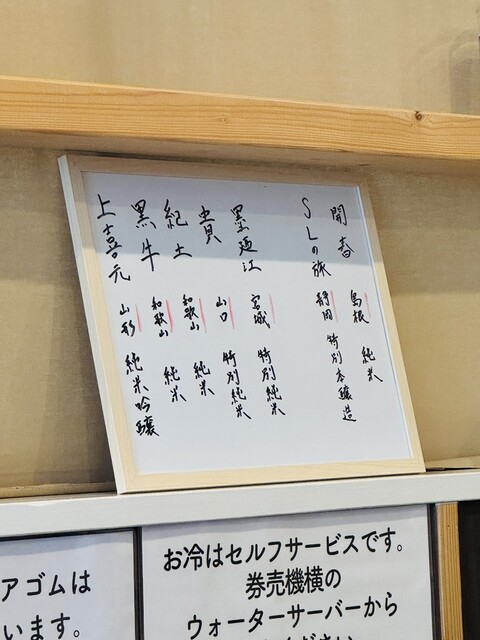 開春 島根 純米
SLの旅 静岡 特別本醸造
墨廼江 宮城 特別純米
貴 山口 特別純米
紀土 和歌山 純米
黒牛 和歌山 純米
上喜元 山形 純米吟醸
アゴムは
います。
お冷はセルフサービスです。
券売機横の
ウォーターサーバーから